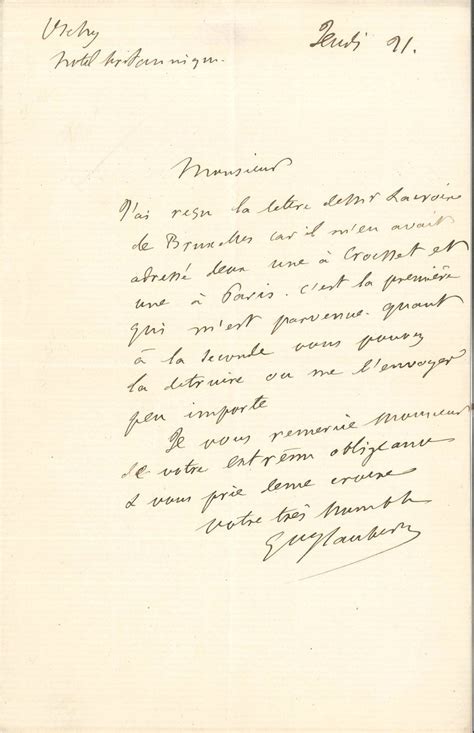 Vichy
hotel britannique.
Jeudi 21.
Monsieur
J'ai reçu la lettre de Mr Lacroix
de Bruxelles car il m'en avait
adressé deux une à Croisset et
une à Paris. C'est la première
qui m'est parvenue. quant
à la seconde vous pouvez
la detruire ou me l'envoyer
peu importe
Je vous remercie Monsieur
de votre extrême obligeance
& vous prie de me croire
votre très humble
Gve Flaubert